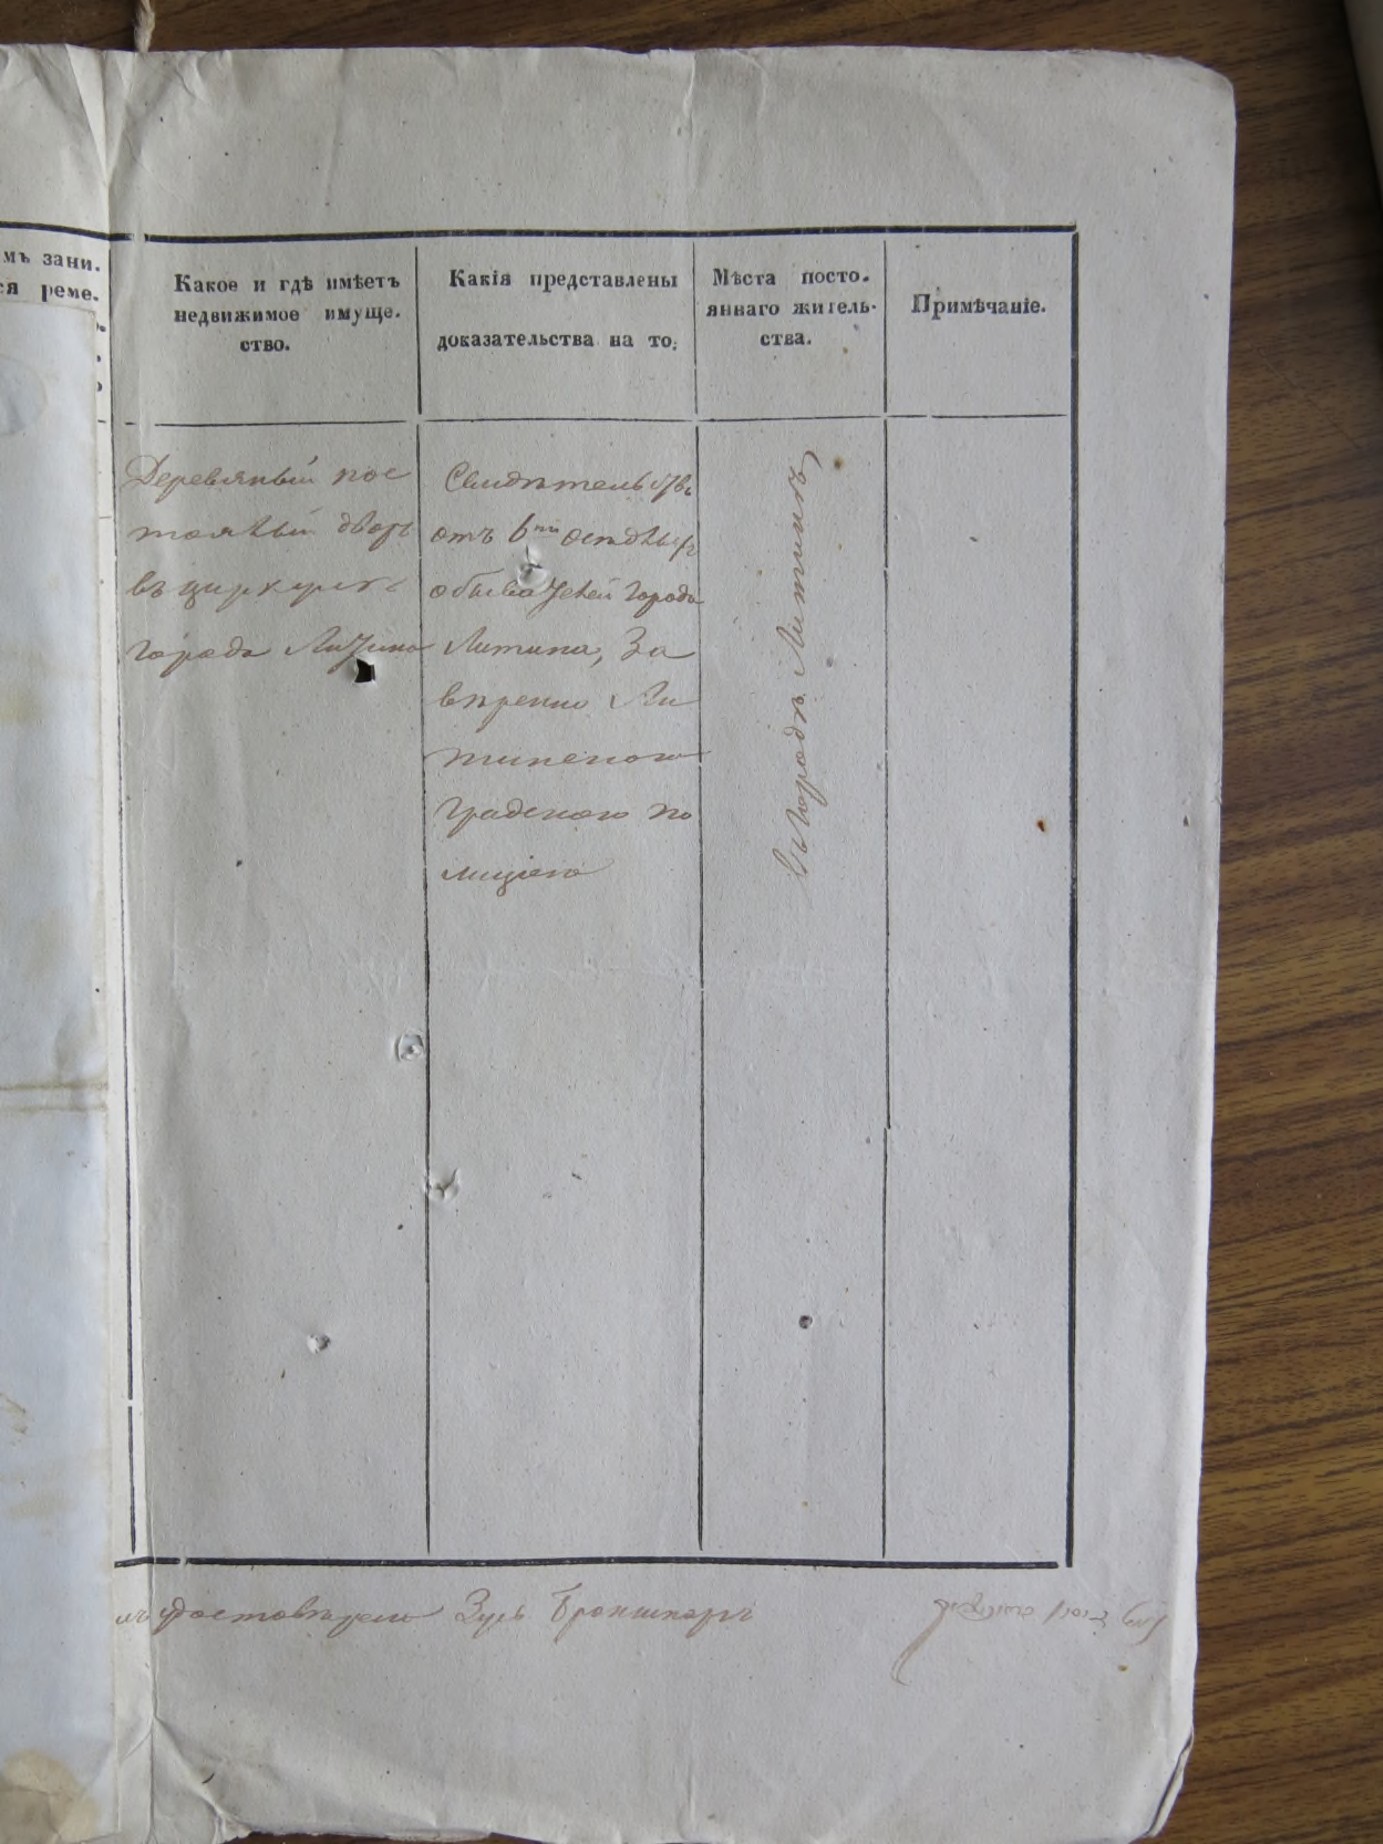 мъ зани.
ся реме.
Какое и гдѣ имѣетъ
недвижимое имуще.
ство.
Какія представлены
доказательства на то.
Мѣста посто.
яннаго житель.
ства.
Примѣчаніе.
Деревяный пос
тоялый дворъ
въ
города Литина
Свидѣтельство
отъ 6ти осѣдлыхъ
обывателей города
Литина, За
вѣренно Ли
тинскою
градскою по
лиціею
въ городѣ Литинѣ
удостовѣряю Зусь Бронштейнъ